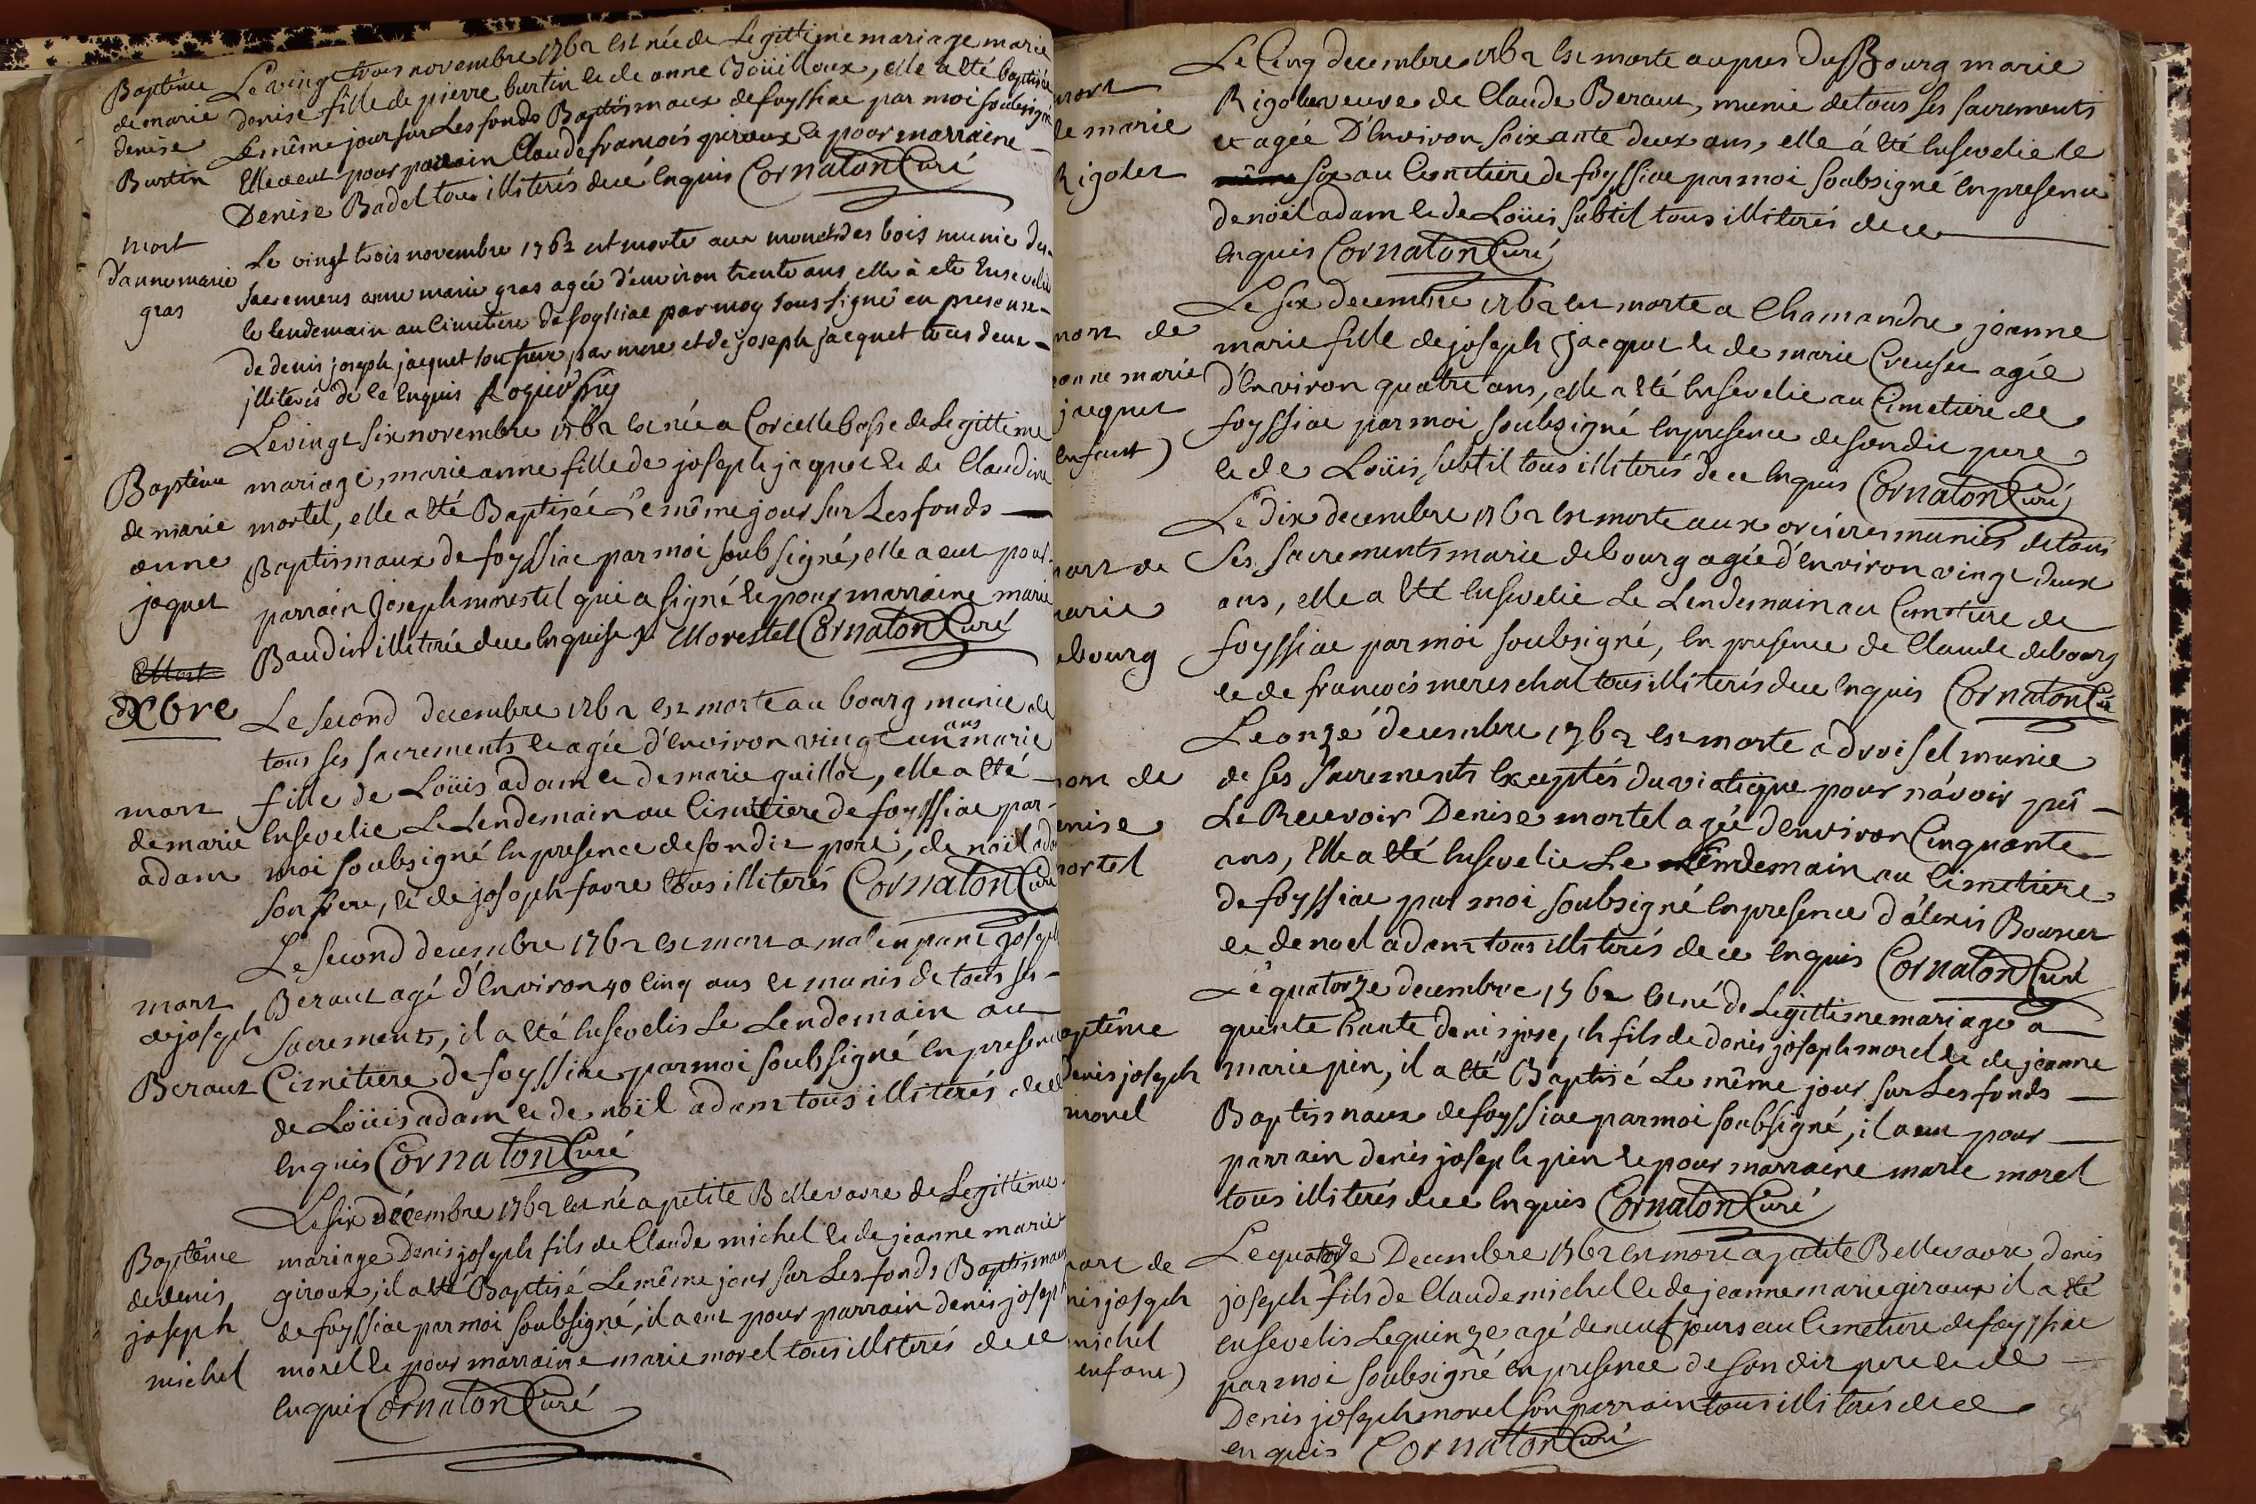 Baptême
de marie
denise
Burtin
Le vingt trois novembre 1762 est née de Legittime mariage marie
denise fille de pierre burtin et de anne Boüilloux, elle a été baptisée
Le même jour sur Les fonds Baptismaux de foyssiac par moi soubsigné
Elle a eut pour parrain Claude francois giroux et pour marraine
Denise Badel tous illiterés de ce enquis Cornaton Curé
mort
d'anne marie
gras
Le vingt trois novembre 1762 est morte aux monts des bois munie des
sacremens anne marie gras agée d'environ trente ans elle à eté Ensevelie
le lendemain au Cimetiere de foyssiac par moy sous signé en presense
de denis joseph jacquet son frere par mere et de joseph jacquet tous deux
jlliterés de ce enquis
Baptême
de marie
anne
jaquet
Le vingt six novembre 1762 est née a Corcelle basse de Legittime
mariage, marie anne fille de joseph jaquet et de Claudine
mortel, elle a été Baptisée Le même jour sur Les fonds
Baptismaux de foyssiac par moi soubsigné, elle a eut pour
parrain Joseph morestel qui a signé et pour marraine marie
Baudin illiterée de ce enquise J. Morestel Cornaton Curé
Mort
Xbre
mort
de marie
adam
Le second decembre 1762 est morte au bourg munie de
tous ses sacrements et agée d'environ vingt un ans marie
fille de Loüis adam et de marie guillot, elle a été
Ensevelie Le Lendemain au Cimitiere de foyssiac par
moi soubsigné En presence de son dit pere, de noïl adam
son frere, et de joseph favre tous illiterés Cornaton Curé
mort
de joseph
Beraut
Le second decembre 1762 est mort a malenpant joseph
Beraut agé d'Environ 40 Cinq ans et munis de tous ses
sacrements, il a été Ensevelis Le Lendemain au
Cimitiere de foyssiac par moi soubssigné En presence
de Loüis adam et de noïl adam tous illiterés de ce
Enquis Cornaton Curé
Baptême
de denis
joseph
michel
Le six décembre 1762 est né a petite Bellevavre de Legittime
mariage Denis joseph fils de Claude michel et de jeanne marie
giroux, il a été Baptisé Le même jour sur Les fonds Baptismaux
de foyssiac par moi soubsigné, il a eut pour parrain denis joseph
morel et pour marraine marie morel tous illiterés de ce
Enquis Cornaton Curé
mort
de marie
Rigolet
Le Cinq decembre 1762 est morte aupres du Bourg marie
Rigolet veuve de Claude Beraut, munie de tous ses sacrements
et agée D'Environ soixante deux ans, elle á été Ensevelie le
même six au Cemitiere de foyssiac par moi soubsigné En presence
de noïel adam et de Loüis subtil tous illiterés de ce
Enquis Cornaton Curé
mort de
jeanne marie
jacquet
enfant)
Le six decembre 1762 est morte a Chamandre jeanne
marie fille de joseph Jacquet et de marie Creuset agée
d'Environ quatre ans, elle a été Ensevelie au Cimetiere de
foyssiac par moi soubsigné En presence de son dit pere
et de Loüis subtil tous illiterés de ce Enquis Cornaton Curé
mort de
marie
debourg
Le dix decembre 1762 est morte aux munies de tous
Ses sacrements marie debourg agée d'Environ vingt deux
ans, elle a été Ensevelie Le Lendemain au Cimetiere de
foyssiac par moi soubsigné, En presence de Claude debourg
et de francois mereschal tous illiterés de ce Enquis Cornaton Curé
mort de
denise
mortel
Le onze decembre 1762 est morte a droisel munie
de ses sacrements Exceptés du viatique pour n'avoir pû
Le Recevoir Denise mortel agée d'environ Cinquante
ans, Elle a été Ensevelie Le Lendemain au Cimetiere
de foyssiac par moi soubsigné En presence d'alexis
et de noel adam tous illiterés de ce Enquis Cornaton Curé
Baptême
denis joseph
morel
Le quatorze decembre 1762 est né de Legittime mariage a
quinte haute denis joseph fils de denis joseph morel et de jeanne
marie pin, il a été Baptisé Le même jour sur Les fonds
Baptismaux de foyssiac par moi soubsigné, il a eut pour
parrain denis joseph pin et pour marraine marie morel
tous illiterés de ce Enquis Cornaton Curé
mort de
denis joseph
michel
enfant)
Le quatorze Decembre 1762 est mort a petite Bellevavre denis
joseph fils de Claude michel et de jeanne marie giroux il a été
ensevelis Le quinze agé de neuf jours au Cimetiere de foyssiac
par moi soubsigné En presence de son dit pere et de
Denis joseph morel son parrain tous illiterés de ce
enquis Cornaton Curé
54